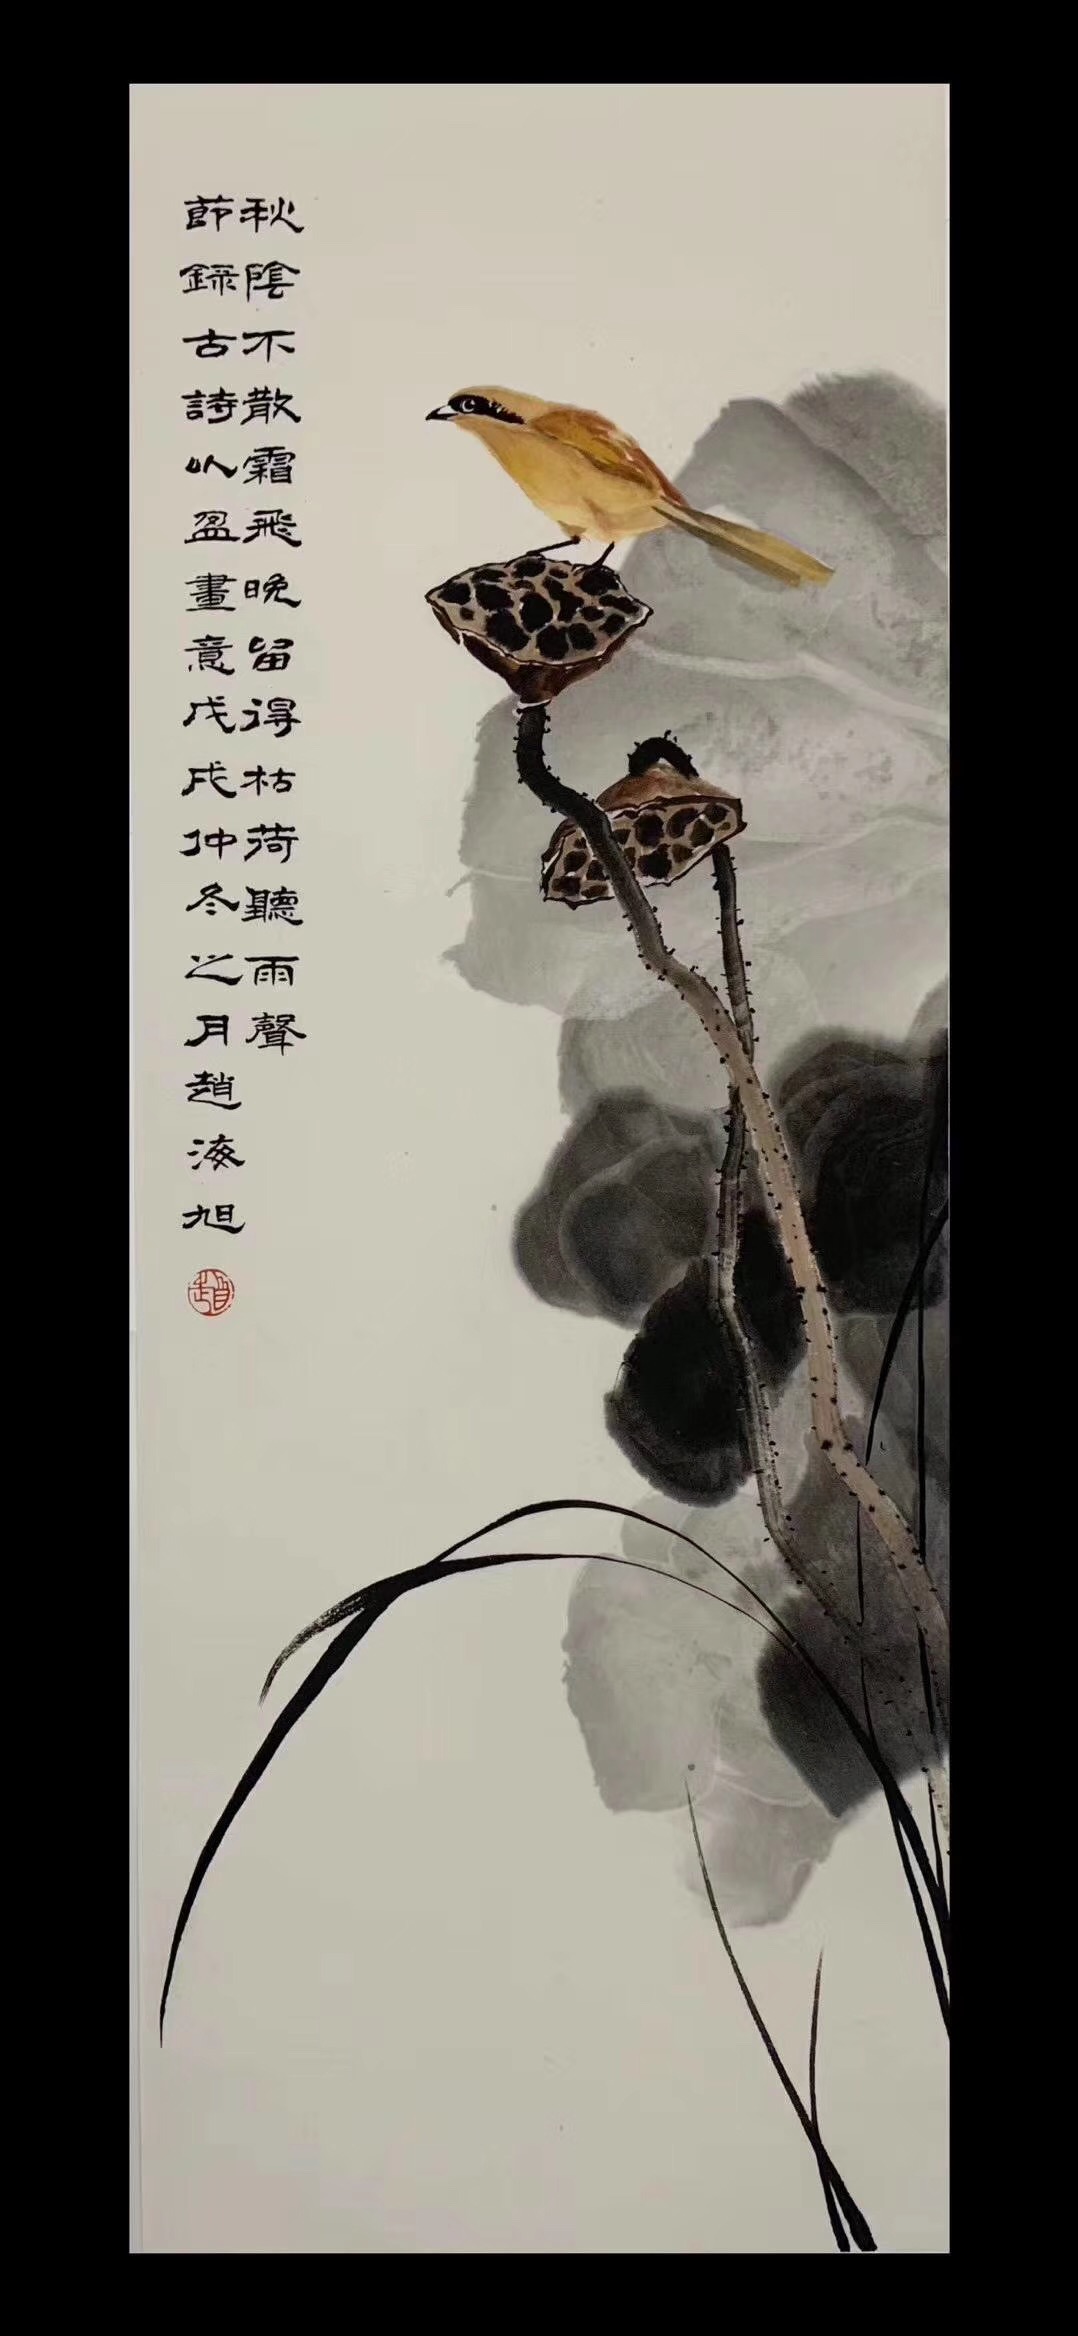 秋陰不散霜飛晚留得枯荷聽雨聲
節錄古詩以盈畫意戊戌仲冬之月趙海旭
趙